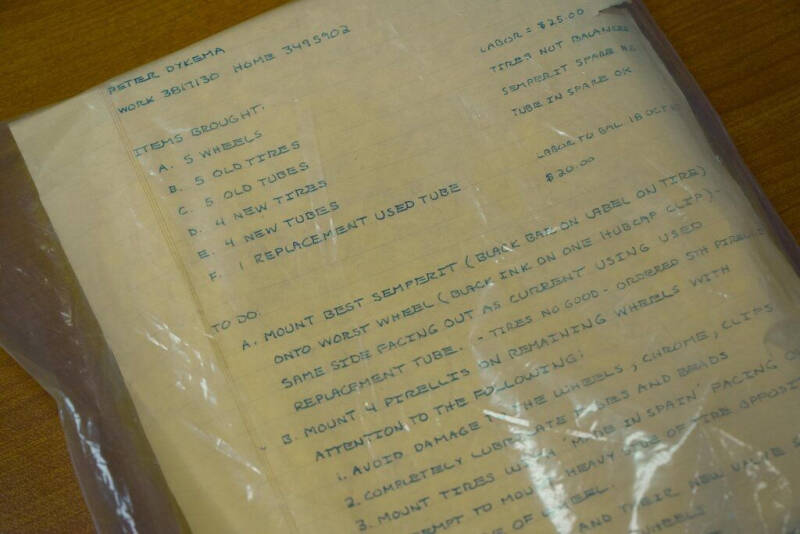 PETER DYKEMA
WORK 3817130 HOME 3495902
LABOR = $25.00
TIRES NOT BALANCED
SEMPERIT SPARE NG
TUBE IN SPARE OK
LABOR TO BAL 18 OCT
$20.00
ITEMS BROUGHT:
A. 5 WHEELS
B. 5 OLD TIRES
C. 5 OLD TUBES
D. 4 NEW TIRES
E. 4 NEW TUBES
F. 1 REPLACEMENT USED TUBE
TO DO:
A. MOUNT BEST SEMPERIT (BLACK BAR ON LABEL ON TIRE)
ONTO WORST WHEEL (BLACK INK ON ONE HUBCAP CLIP) -
SAME SIDE FACING OUT AS CURRENT USING USED
REPLACEMENT TUBE. - TIRES NO GOOD - ORDERED 5TH PIRELLI
B. MOUNT 4 PIRELLIS ON REMAINING WHEELS WITH
ATTENTION TO THE FOLLOWING:
1. AVOID DAMAGE THE WHEELS, CHROME, CLIPS
2. COMPLETELY LUBRICATE AND BEADS
3. MOUNT TIRES WITH 'MADE IN SPAIN' FACING
TO MOUNT HEAVY SIDE OF TIRE
OF WHEEL.
AND THEIR NEW VALVE
WHEELS